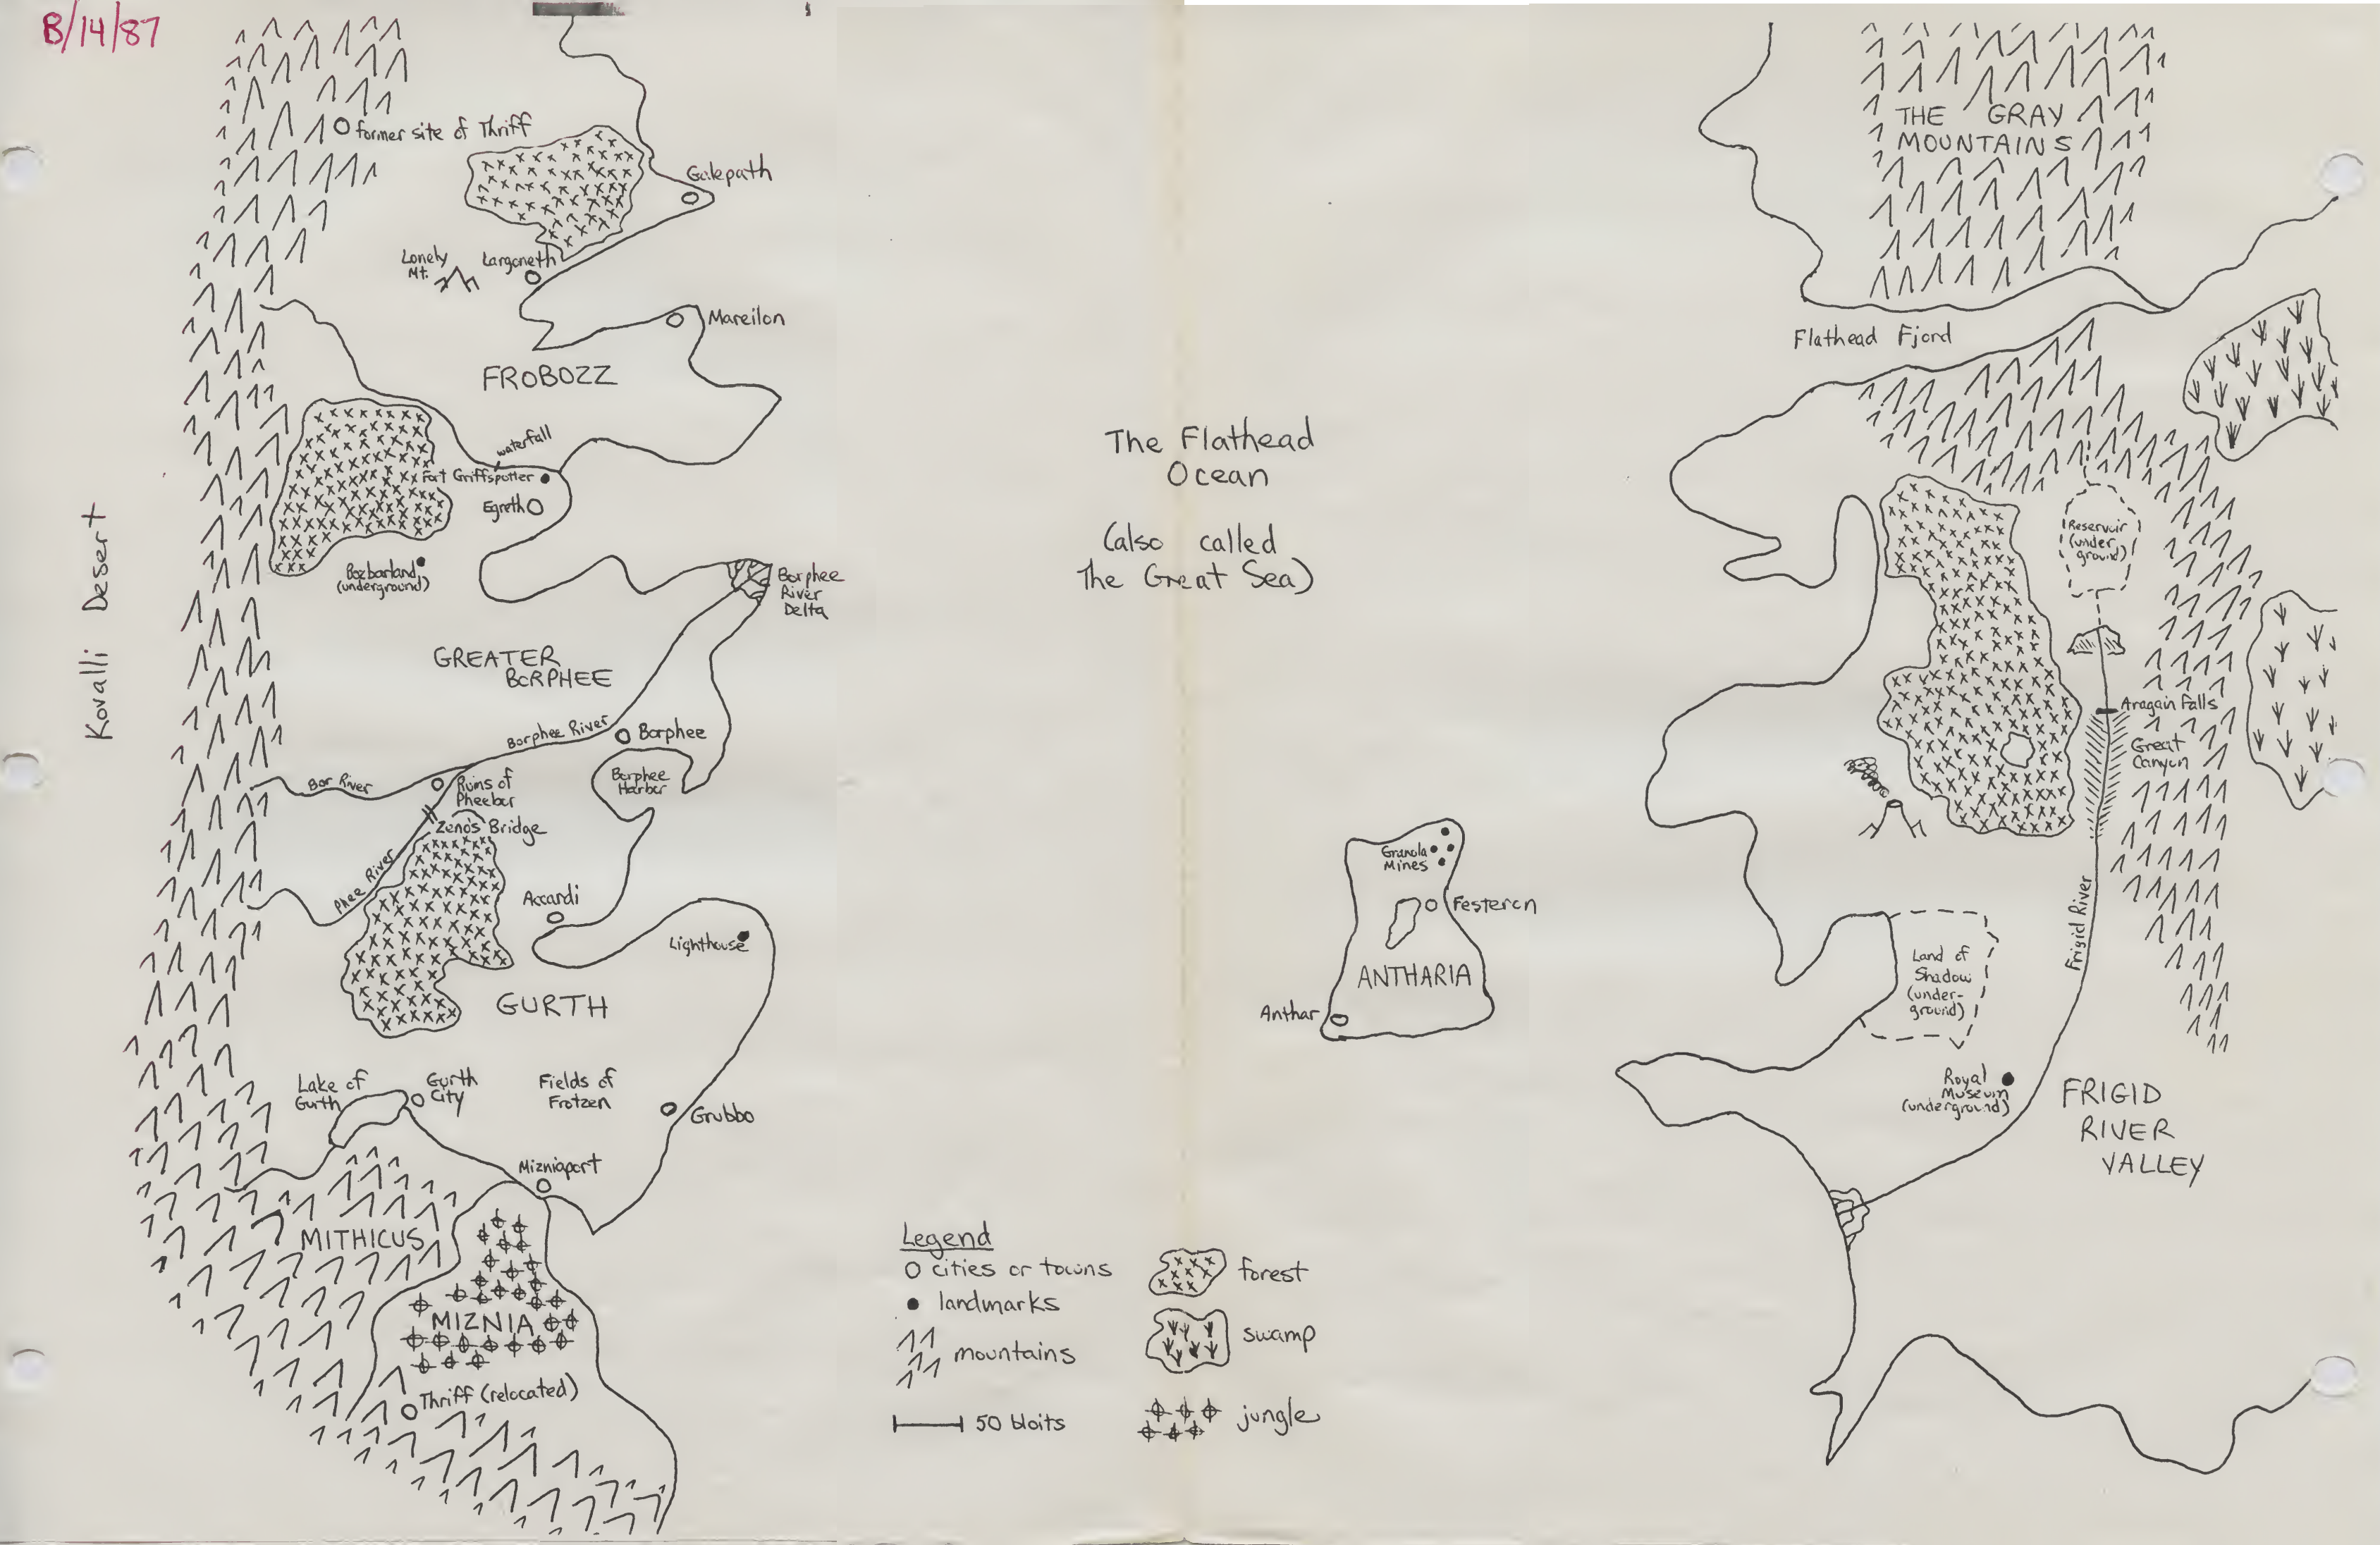 8/14/87
former site of Thriff
Galepath
Lonely
Mt.
Largoneth
Mareilon
FROBOZZ
waterfall
Fort Griffspotter
Egreth
Bozbarland
(underground)
Kovalli Desert
Borphee
River
Delta
GREATER
BORPHEE
Borphee River
Borphee
Borphee
Harbor
Bor River
Ruins of
Pheebor
Zeno's Bridge
Phee River
Accardi
Lighthouse
GURTH
Lake of
Gurth
Gurth
City
Fields of
Frotzen
Grubbo
Mizniaport
MITHICUS
MIZNIA
Thriff (relocated)
The Flathead
Ocean
(also called
The Great Sea)
Granola
Mines
Festeron
ANTHARIA
Anthar
Legend
cities or towns
landmarks
mountains
50 bloits
forest
swamp
jungle
THE GRAY
MOUNTAINS
Flathead Fjord
Reservoir
(under
ground)
Aragain Falls
Great
Canyon
Frigid River
Land of
Shadow
(under-
ground)
Royal
Museum
(underground)
FRIGID
RIVER
VALLEY